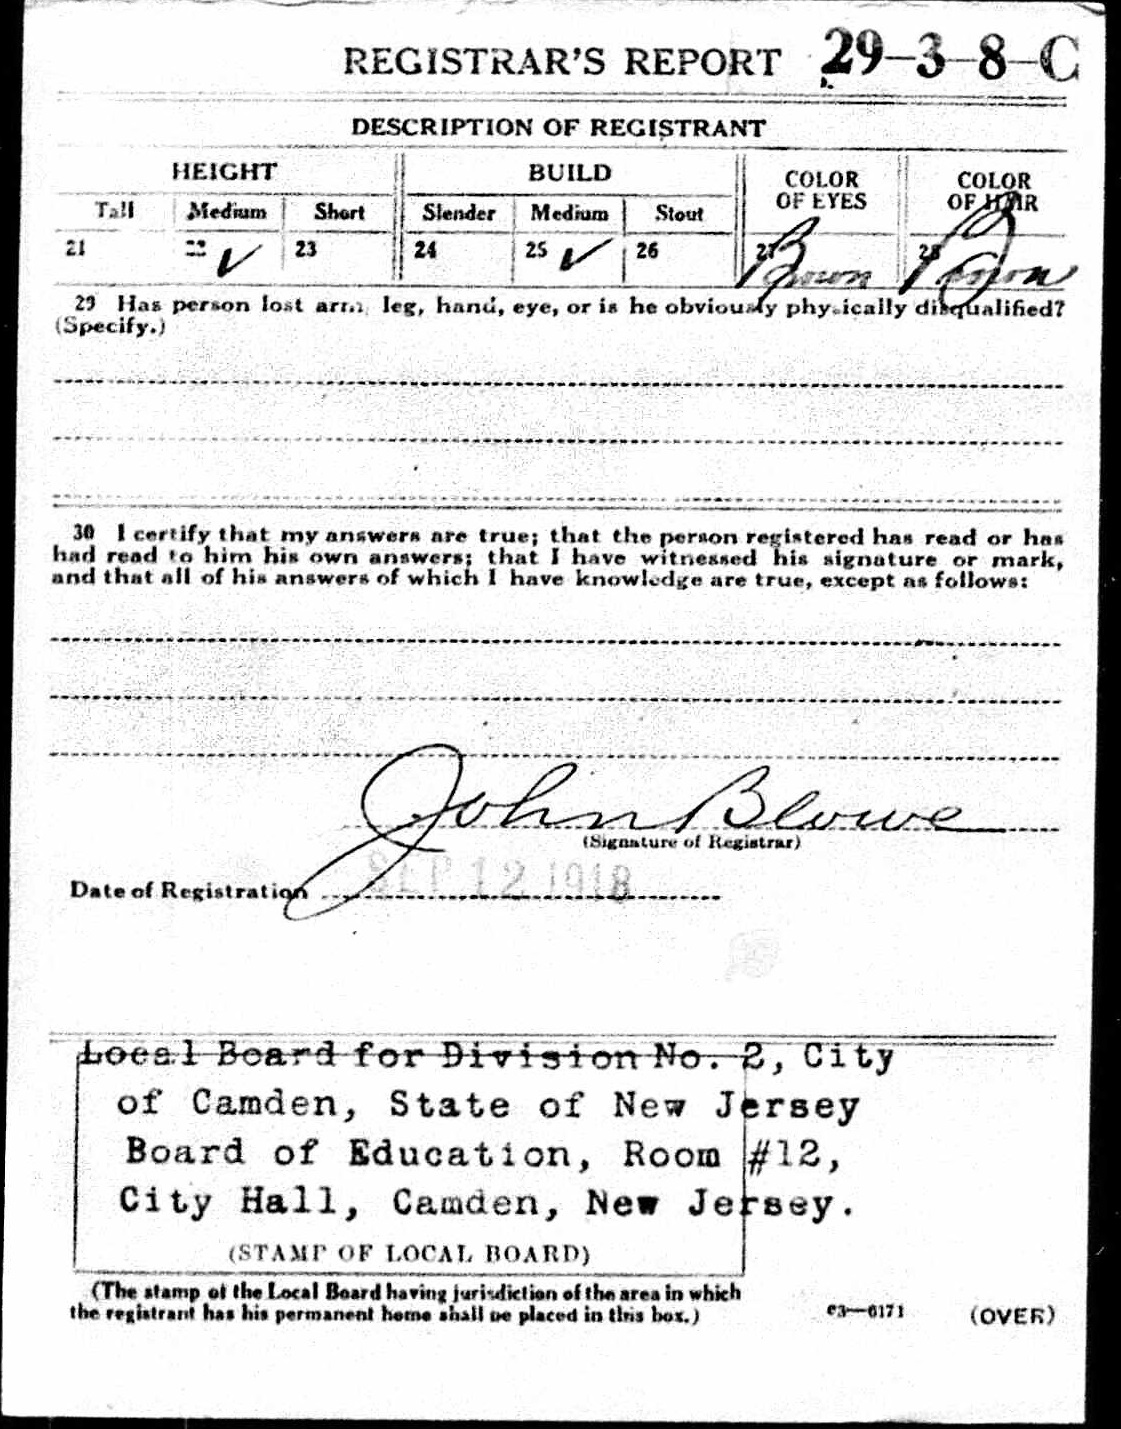 REGISTRAR'S REPORT 29-3-8-C
DESCRIPTION OF REGISTRANT
HEIGHT BUILD COLOR OF EYES COLOR OF HAIR
Tall Medium Short Slender Medium Stout
21 22 ✓ 23 24 25 ✓ 26 27 Brown 28 Brown
29 Has person lost arm, leg, hand, eye, or is he obviously physically disqualified?
(Specify.)
30 I certify that my answers are true; that the person registered has read or has
had read to him his own answers; that I have witnessed his signature or mark,
and that all of his answers of which I have knowledge are true, except as follows:
John Blowe
(Signature of Registrar)
Date of Registration SEP 12 1918
Local Board for Division No. 2, City
of Camden, State of New Jersey
Board of Education, Room #12,
City Hall, Camden, New Jersey.
(STAMP OF LOCAL BOARD)
(The stamp of the Local Board having jurisdiction of the area in which
the registrant has his permanent home shall be placed in this box.)
03—6171 (OVER)